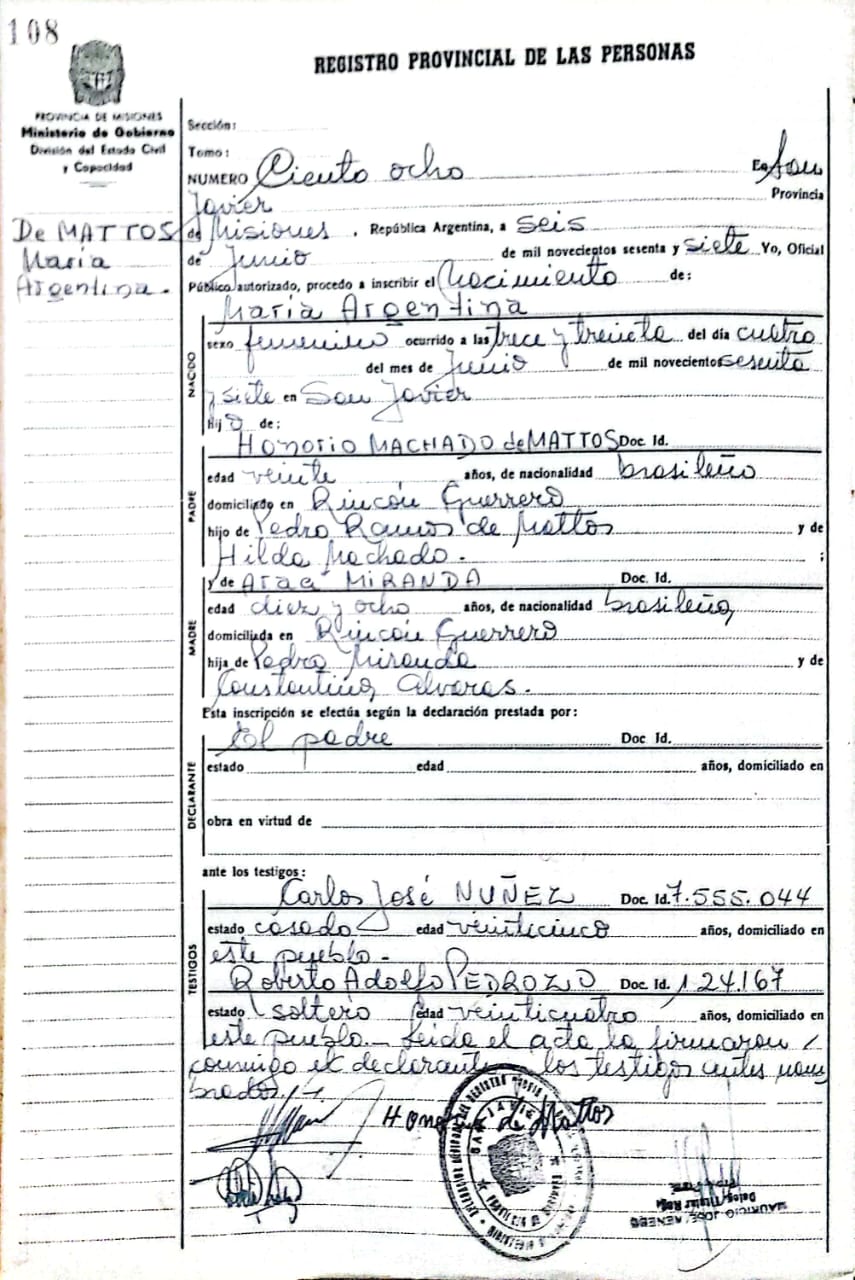 108
REGISTRO PROVINCIAL DE LAS PERSONAS
PROVINCIA DE MISIONES
Ministerio de Gobierno
División del Estado Civil
y Capacidad
De MATTOS
María
Argentina.-
Sección:
Tomo:
NUMERO Ciento ocho En San
Javier Provincia
de Misiones . República Argentina, a seis
de Junio de mil novecientos sesenta y siete Yo, Oficial
Público autorizado, procedo a inscribir el Nacimiento de:
María Argentina
NACIDO
sexo femenino ocurrido a las trece y treinta del día cuatro
del mes de Junio de mil novecientos sesenta
y siete en San Javier
Hij a de:
Honorio MACHADO de MATTOS Doc. Id.
PADRE
edad veinte años, de nacionalidad brasileño
domiciliado en Rincón Guerrero
hijo de Pedro Ramos de Mattos y de
Hilda Machado. ;
y de MIRANDA Doc. Id.
MADRE
edad diez y ocho años, de nacionalidad brasileña
domiciliada en Rincón Guerrero
hija de Pedro Miranda y de
Constantina Alvaras.
Esta inscripción se efectúa según la declaración prestada por:
El padre Doc. Id.
DECLARANTE
estado edad años, domiciliado en
obra en virtud de
ante los testigos:
Carlos José NUÑEZ Doc. Id. 7.555.044
TESTIGOS
estado casado edad veinticinco años, domiciliado en
este pueblo.-
Roberto Adolfo PEDROZO Doc. Id. 124.167
estado soltero edad veinticuatro años, domiciliado en
este pueblo.- Leida el acta la firmaron
conmigo el declarante y los testigos antes nom
brados.
de Mattos
SAN JAVIER
MAURICIO JOSÉ